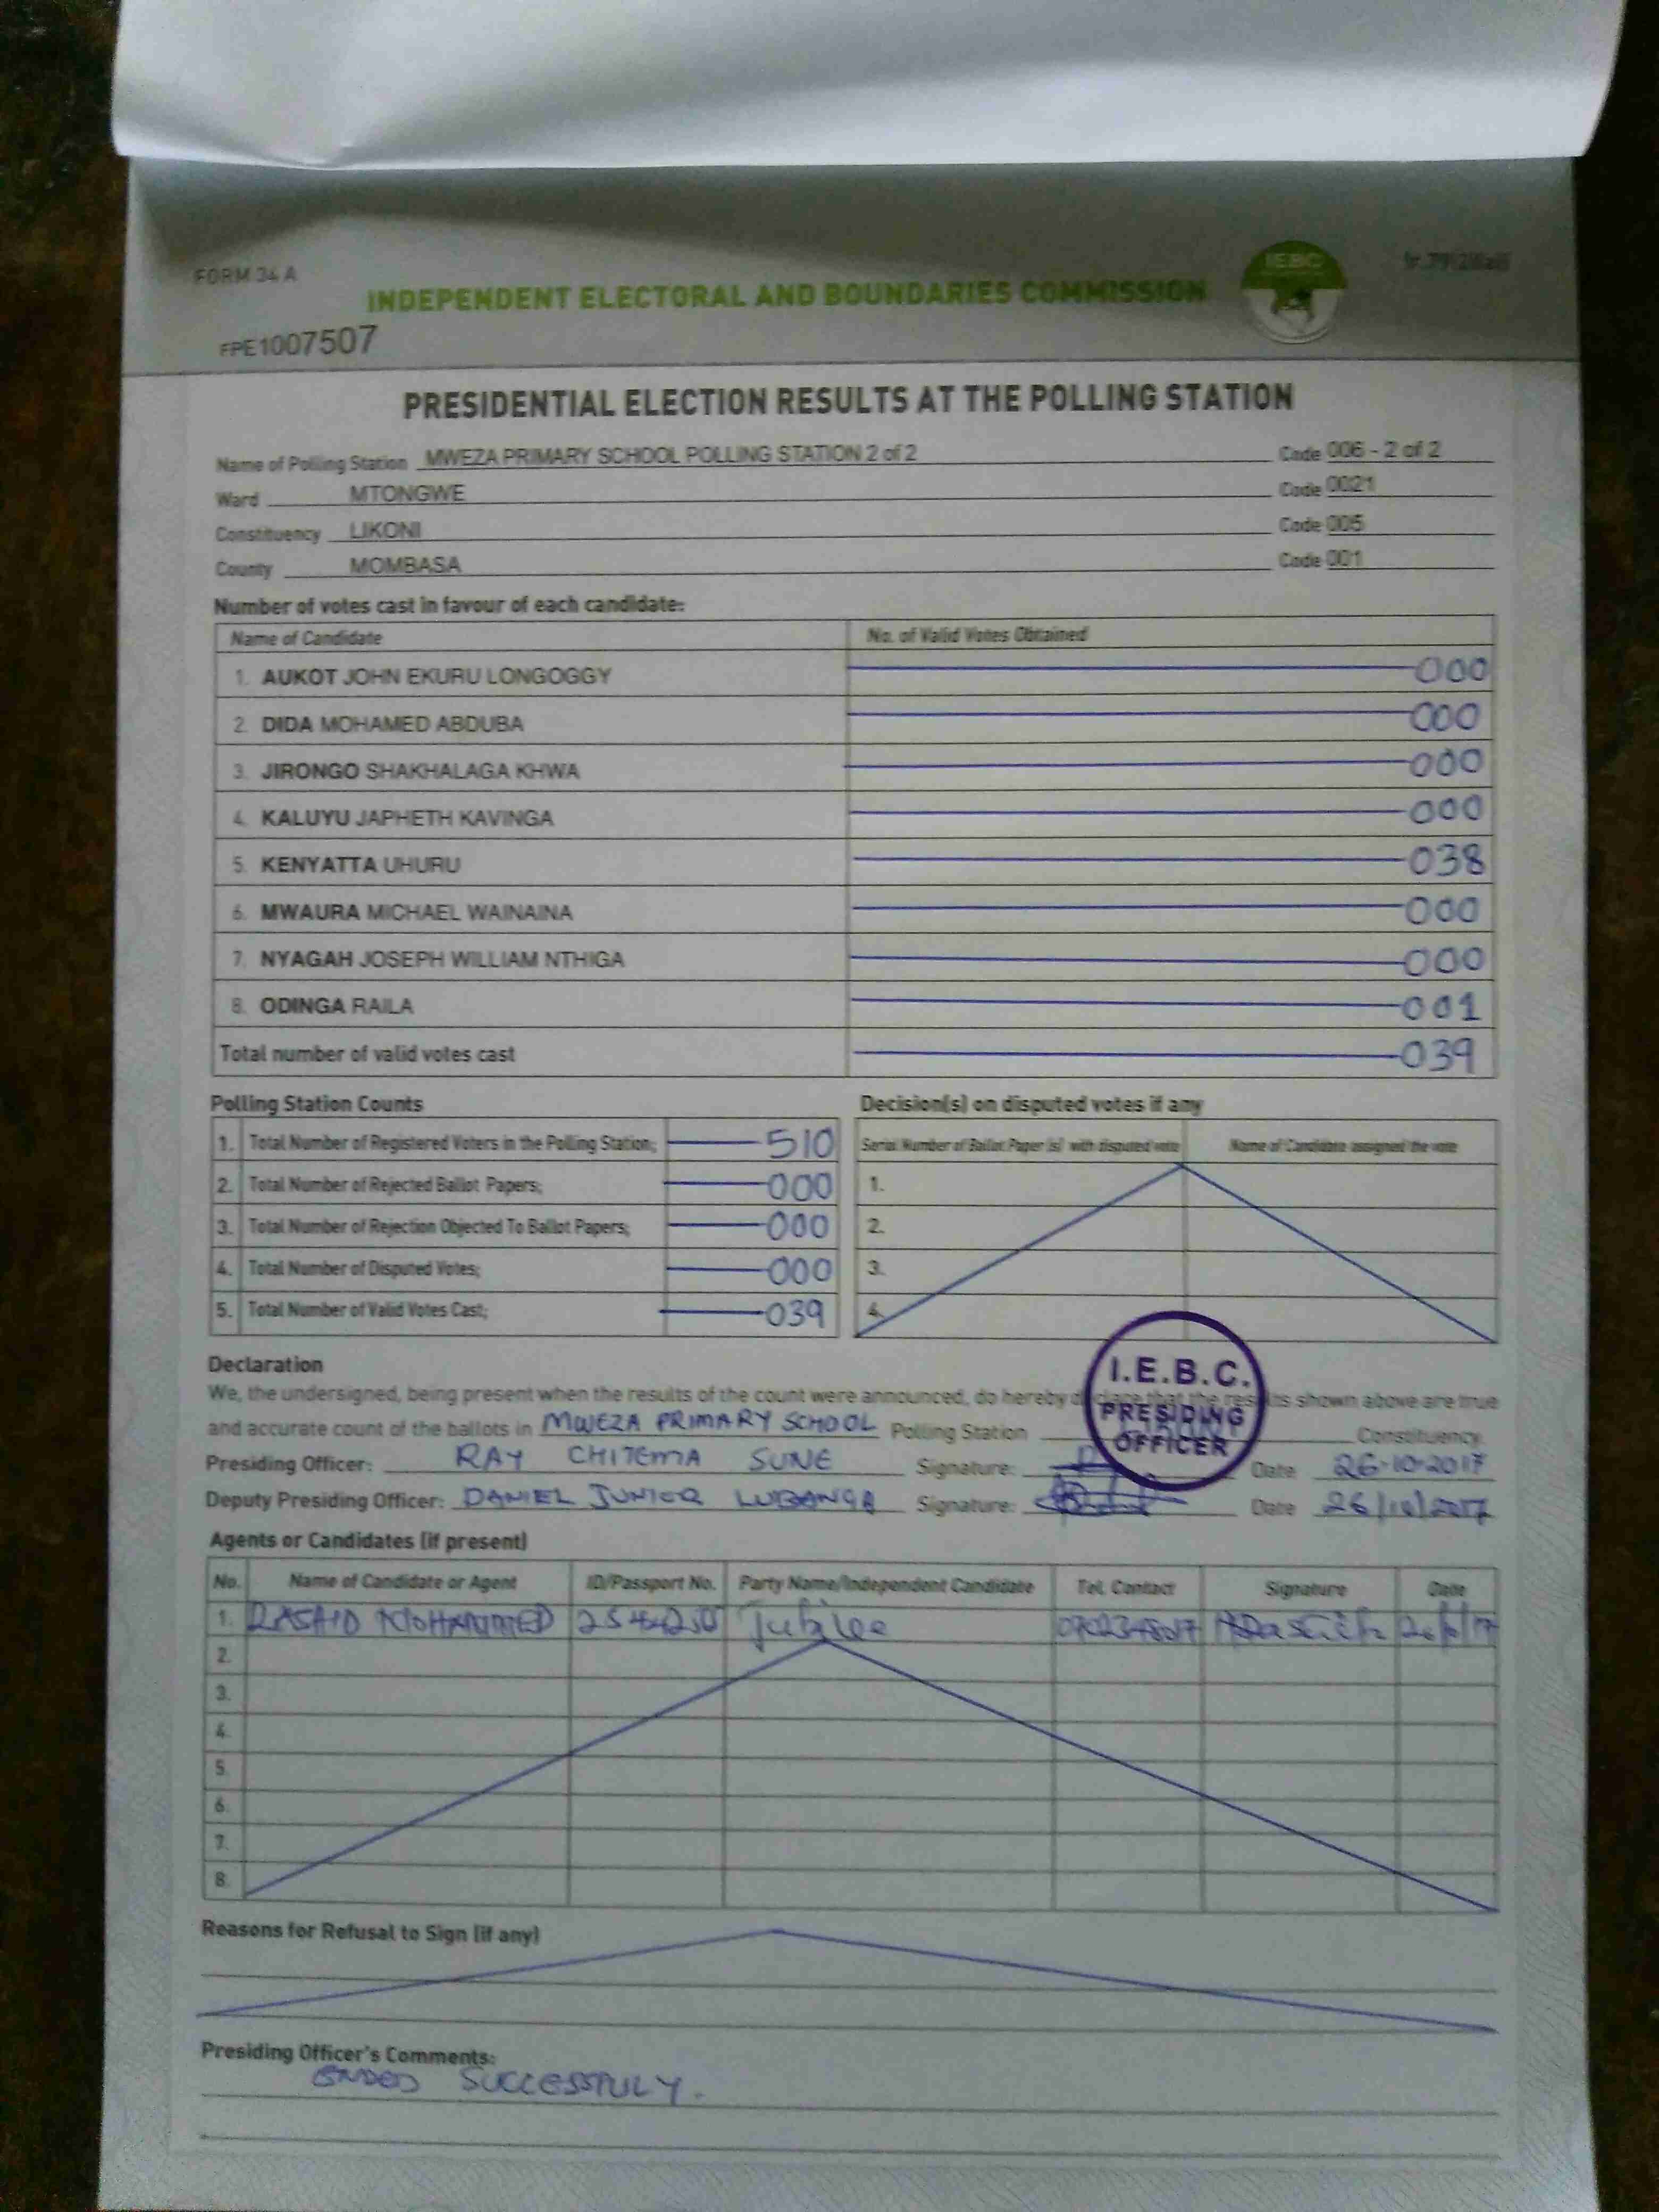 FORM 34 A
IEBC
INDEPENDENT ELECTORAL AND BOUNDARIES COMMISSION
FPE1007507
PRESIDENTIAL ELECTION RESULTS AT THE POLLING STATION
Name of Polling Station MWEZA PRIMARY SCHOOL POLLING STATION 2 of 2 Code 006 - 2 of 2
Ward MTONGWE Code 0021
Constituency LIKONI Code 005
County MOMBASA Code 001
Number of votes cast in favour of each candidate:
Name of Candidate No. of Valid Votes Obtained
1. AUKOT JOHN EKURU LONGOGGY 000
2. DIDA MOHAMED ABDUBA 000
3. JIRONGO SHAKHALAGA KHWA 000
4. KALUYU JAPHETH KAVINGA 000
5. KENYATTA UHURU 038
6. MWAURA MICHAEL WAINAINA 000
7. NYAGAH JOSEPH WILLIAM NTHIGA 000
8. ODINGA RAILA 001
Total number of valid votes cast 039
Polling Station Counts
1. Total Number of Registered Voters in the Polling Station; 510
2. Total Number of Rejected Ballot Papers; 000
3. Total Number of Rejection Objected To Ballot Papers; 000
4. Total Number of Disputed Votes; 000
5. Total Number of Valid Votes Cast; 039
Decision(s) on disputed votes if any
Serial Number of Ballot Paper (s) with disputed vote Name of Candidate assigned the vote
1.
2.
3.
4.
Declaration
We, the undersigned, being present when the results of the count were announced, do hereby declare that the results shown above are true
and accurate count of the ballots in MWEZA PRIMARY SCHOOL Polling Station Constituency
I.E.B.C.
PRESIDING
OFFICER
Presiding Officer: RAY CHITEMA SUNE Signature: Date 26-10-2017
Deputy Presiding Officer: DANIEL JUNIOR LUBANGA Signature: Date 26/10/2017
Agents or Candidates (if present)
No. Name of Candidate or Agent ID/Passport No. Party Name/Independent Candidate Tel. Contact Signature Date
1. RASHID MOHAMMED Jubilee
2.
3.
4.
5.
6.
7.
8.
Reasons for Refusal to Sign (if any)
Presiding Officer's Comments:
ENDED SUCCESSFULY.